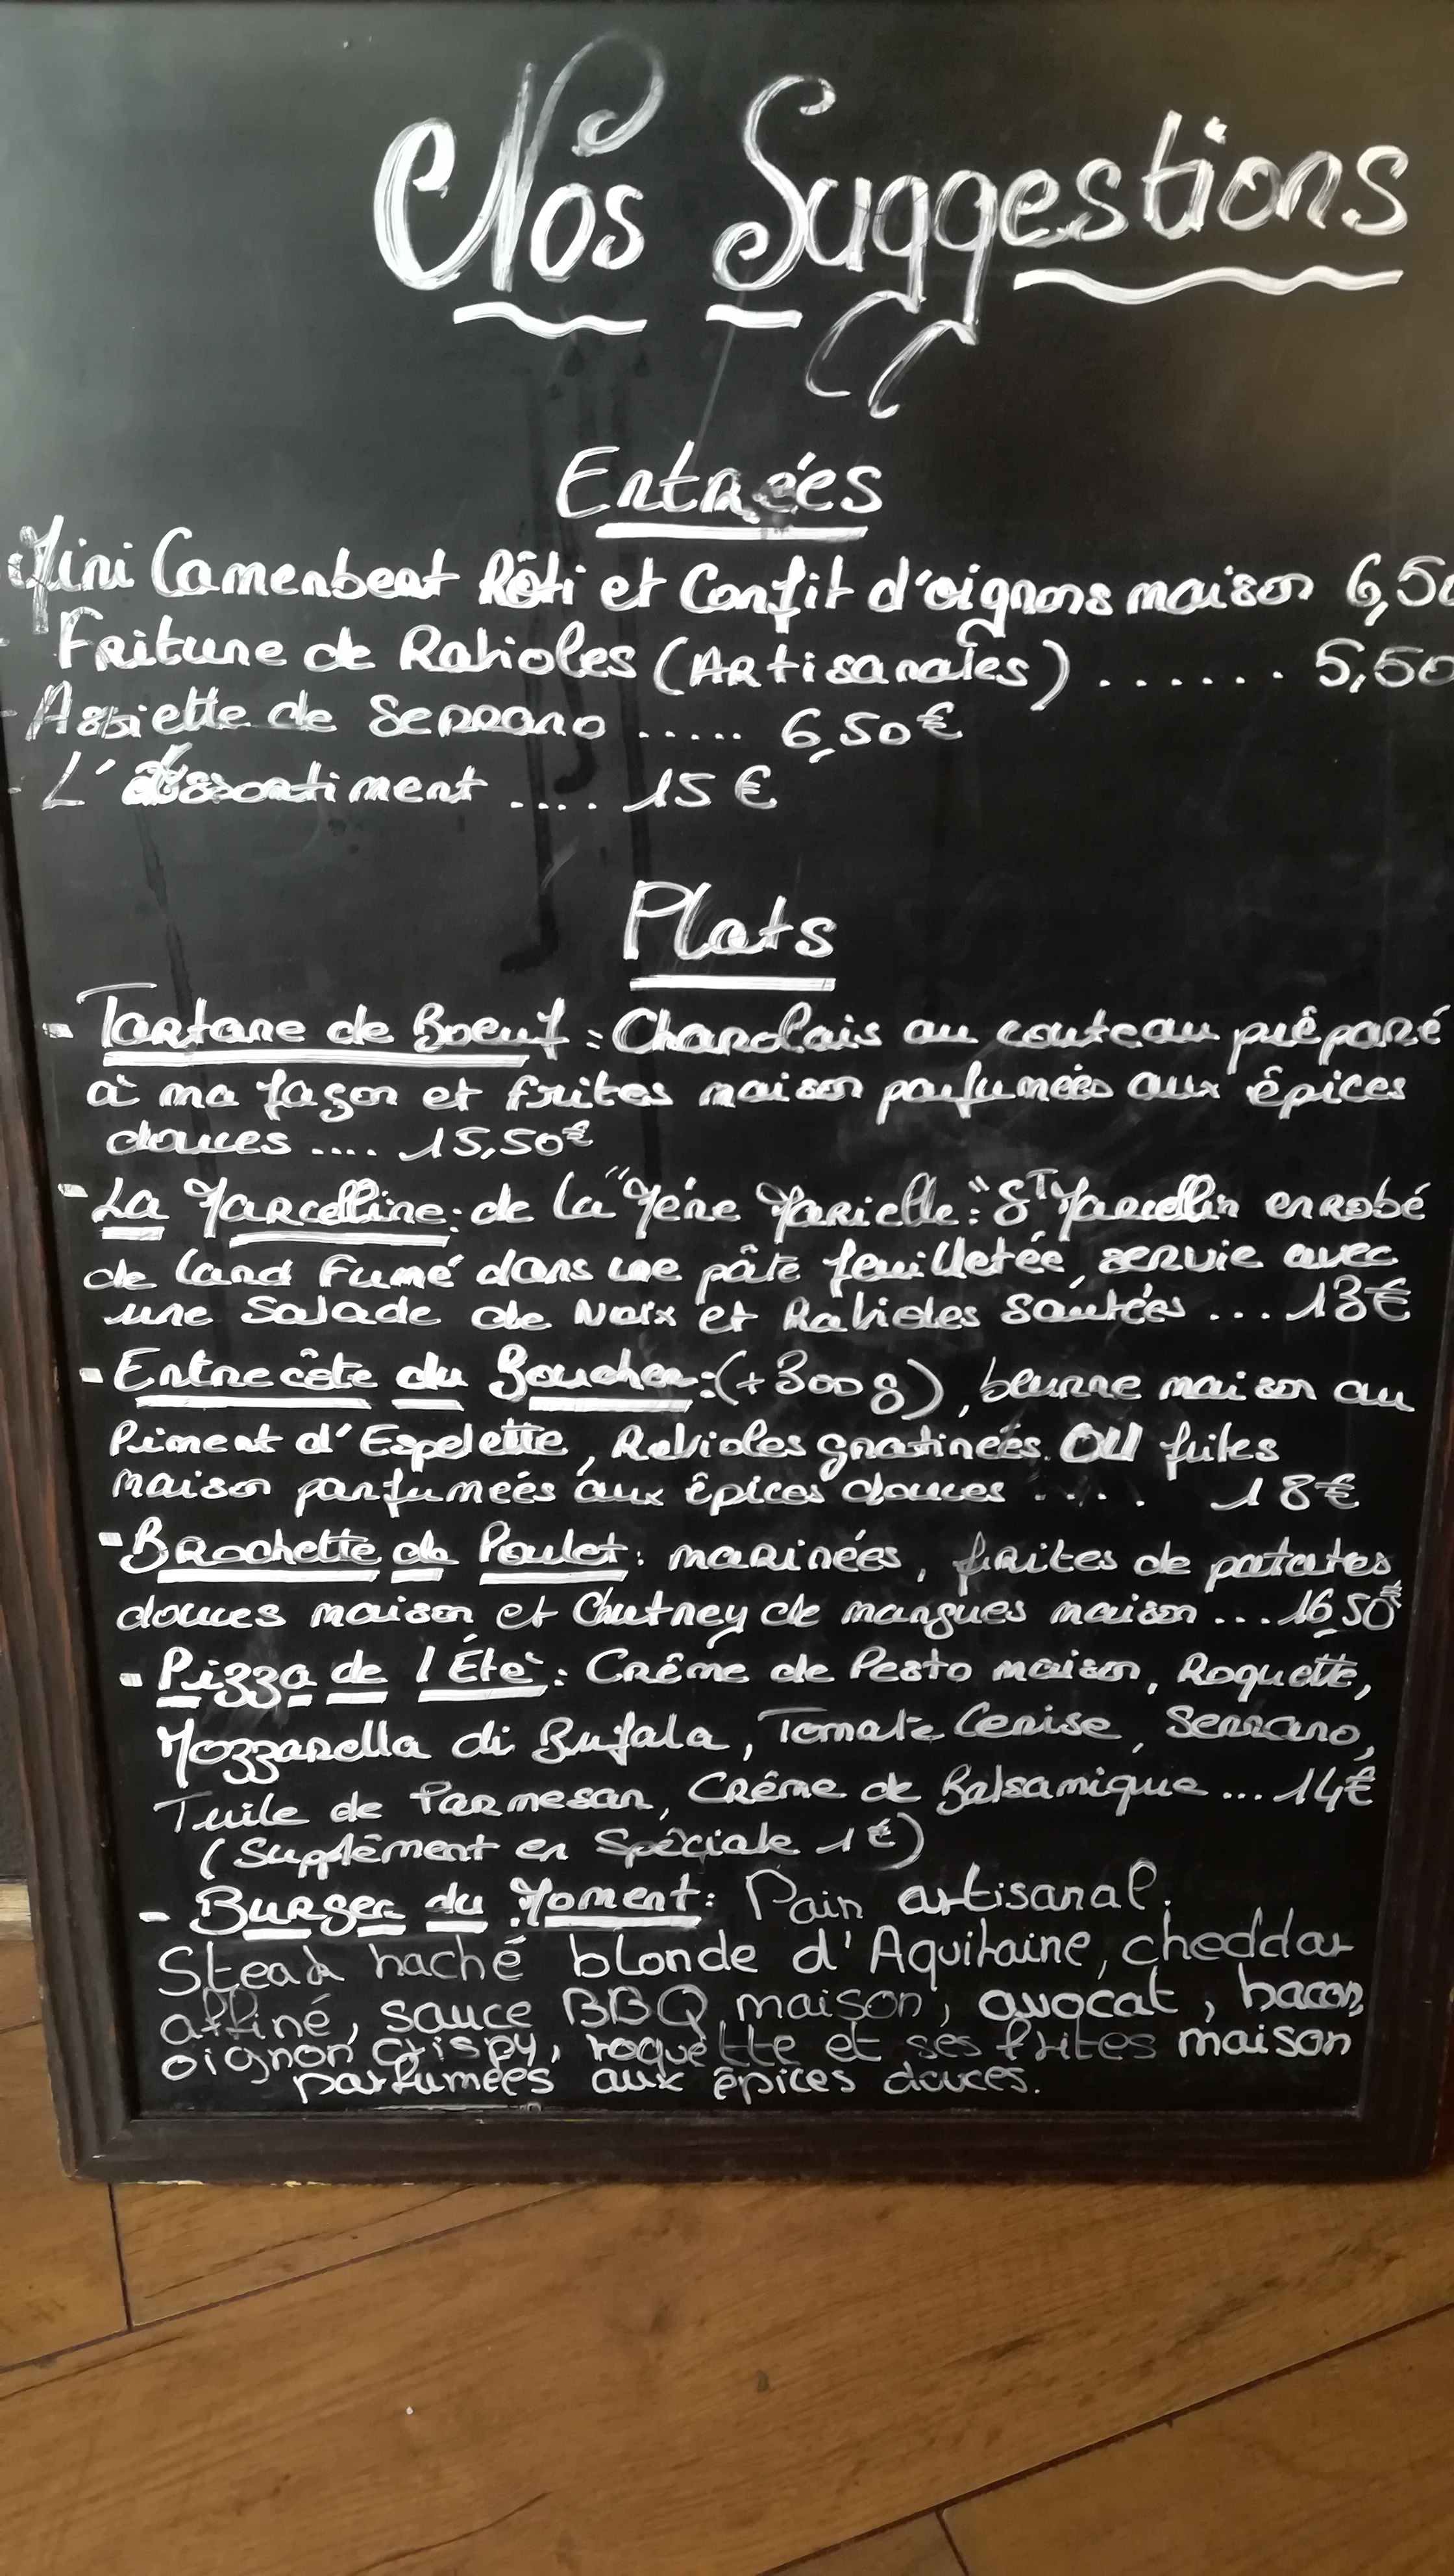 Nos Suggestions
Entrées
Mini Camembert Rôti et Confit d'oignons maison 6,50
- Friture de Ravioles (Artisanales) ...... 5,50
- Assiette de Serrano ..... 6,50€
- L'assortiment .... 15 €
Plats
- Tartare de Boeuf : Charolais au couteau préparé
à ma façon et frites maison parfumées aux épices
douces .... 15,50€
- La Marcelline : de la "Mère Marielle : " St Marcellin enrobé
de lard Fumé dans une pâte feuilletée, servie avec
une Salade de Noix et Ravioles sautées ... 13€
- Entrecôte du Boucher : (+300g), beurre maison au
Piment d'Espelette, Ravioles gratinées OU frites
maison parfumées aux épices douces .... 18€
- Brochette de Poulet : marinées, frites de patates
douces maison et Chutney de mangues maison ... 16,50€
- Pizza de l'Été : Crême de Pesto maison, Roquette,
Mozzarella di Bufala, Tomate Cerise, Serrano,
Tuile de Parmesan, Crême de Balsamique ... 14€
(Supplément en Spéciale 1€)
- Burger du Moment : Pain artisanal.
Steak haché blonde d'Aquitaine, cheddar
affiné, sauce BBQ maison, avocat, bacon,
oignon crispy, roquette et ses frites maison
parfumées aux épices douces.